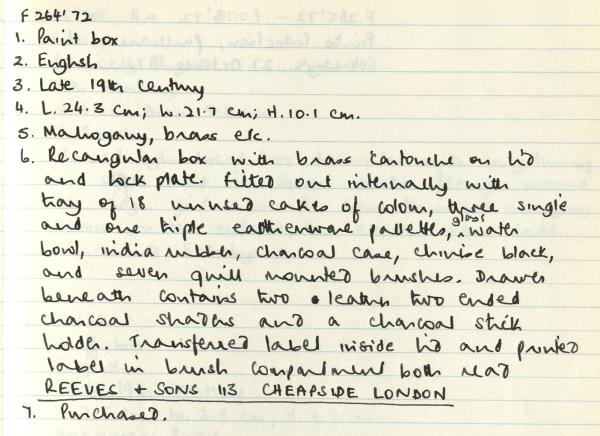 F264'72
1. Paint box
2. English
3. Late 19th century
4. L. 24.3 cm; W. 21.7 cm; H. 10.1 cm.
5. Mahogany, brass etc.
6. Recangular box with brass cartouche on lid
and lock plate. Fitted out internally with
tray of 18 unused cakes of colour, three single
and one triple earthenware pallettes, glass water
bowl, india rubber, charcoal case, chinise black,
and seven quill mounted brushes. Drawer
beneath contains two leather two ended
charcoal shaders and a charcoal stick
holder. Transferred label inside lid and printed
label in brush compartment both read
REEVES + SONS 113 CHEAPSIDE LONDON
7. Purchased.